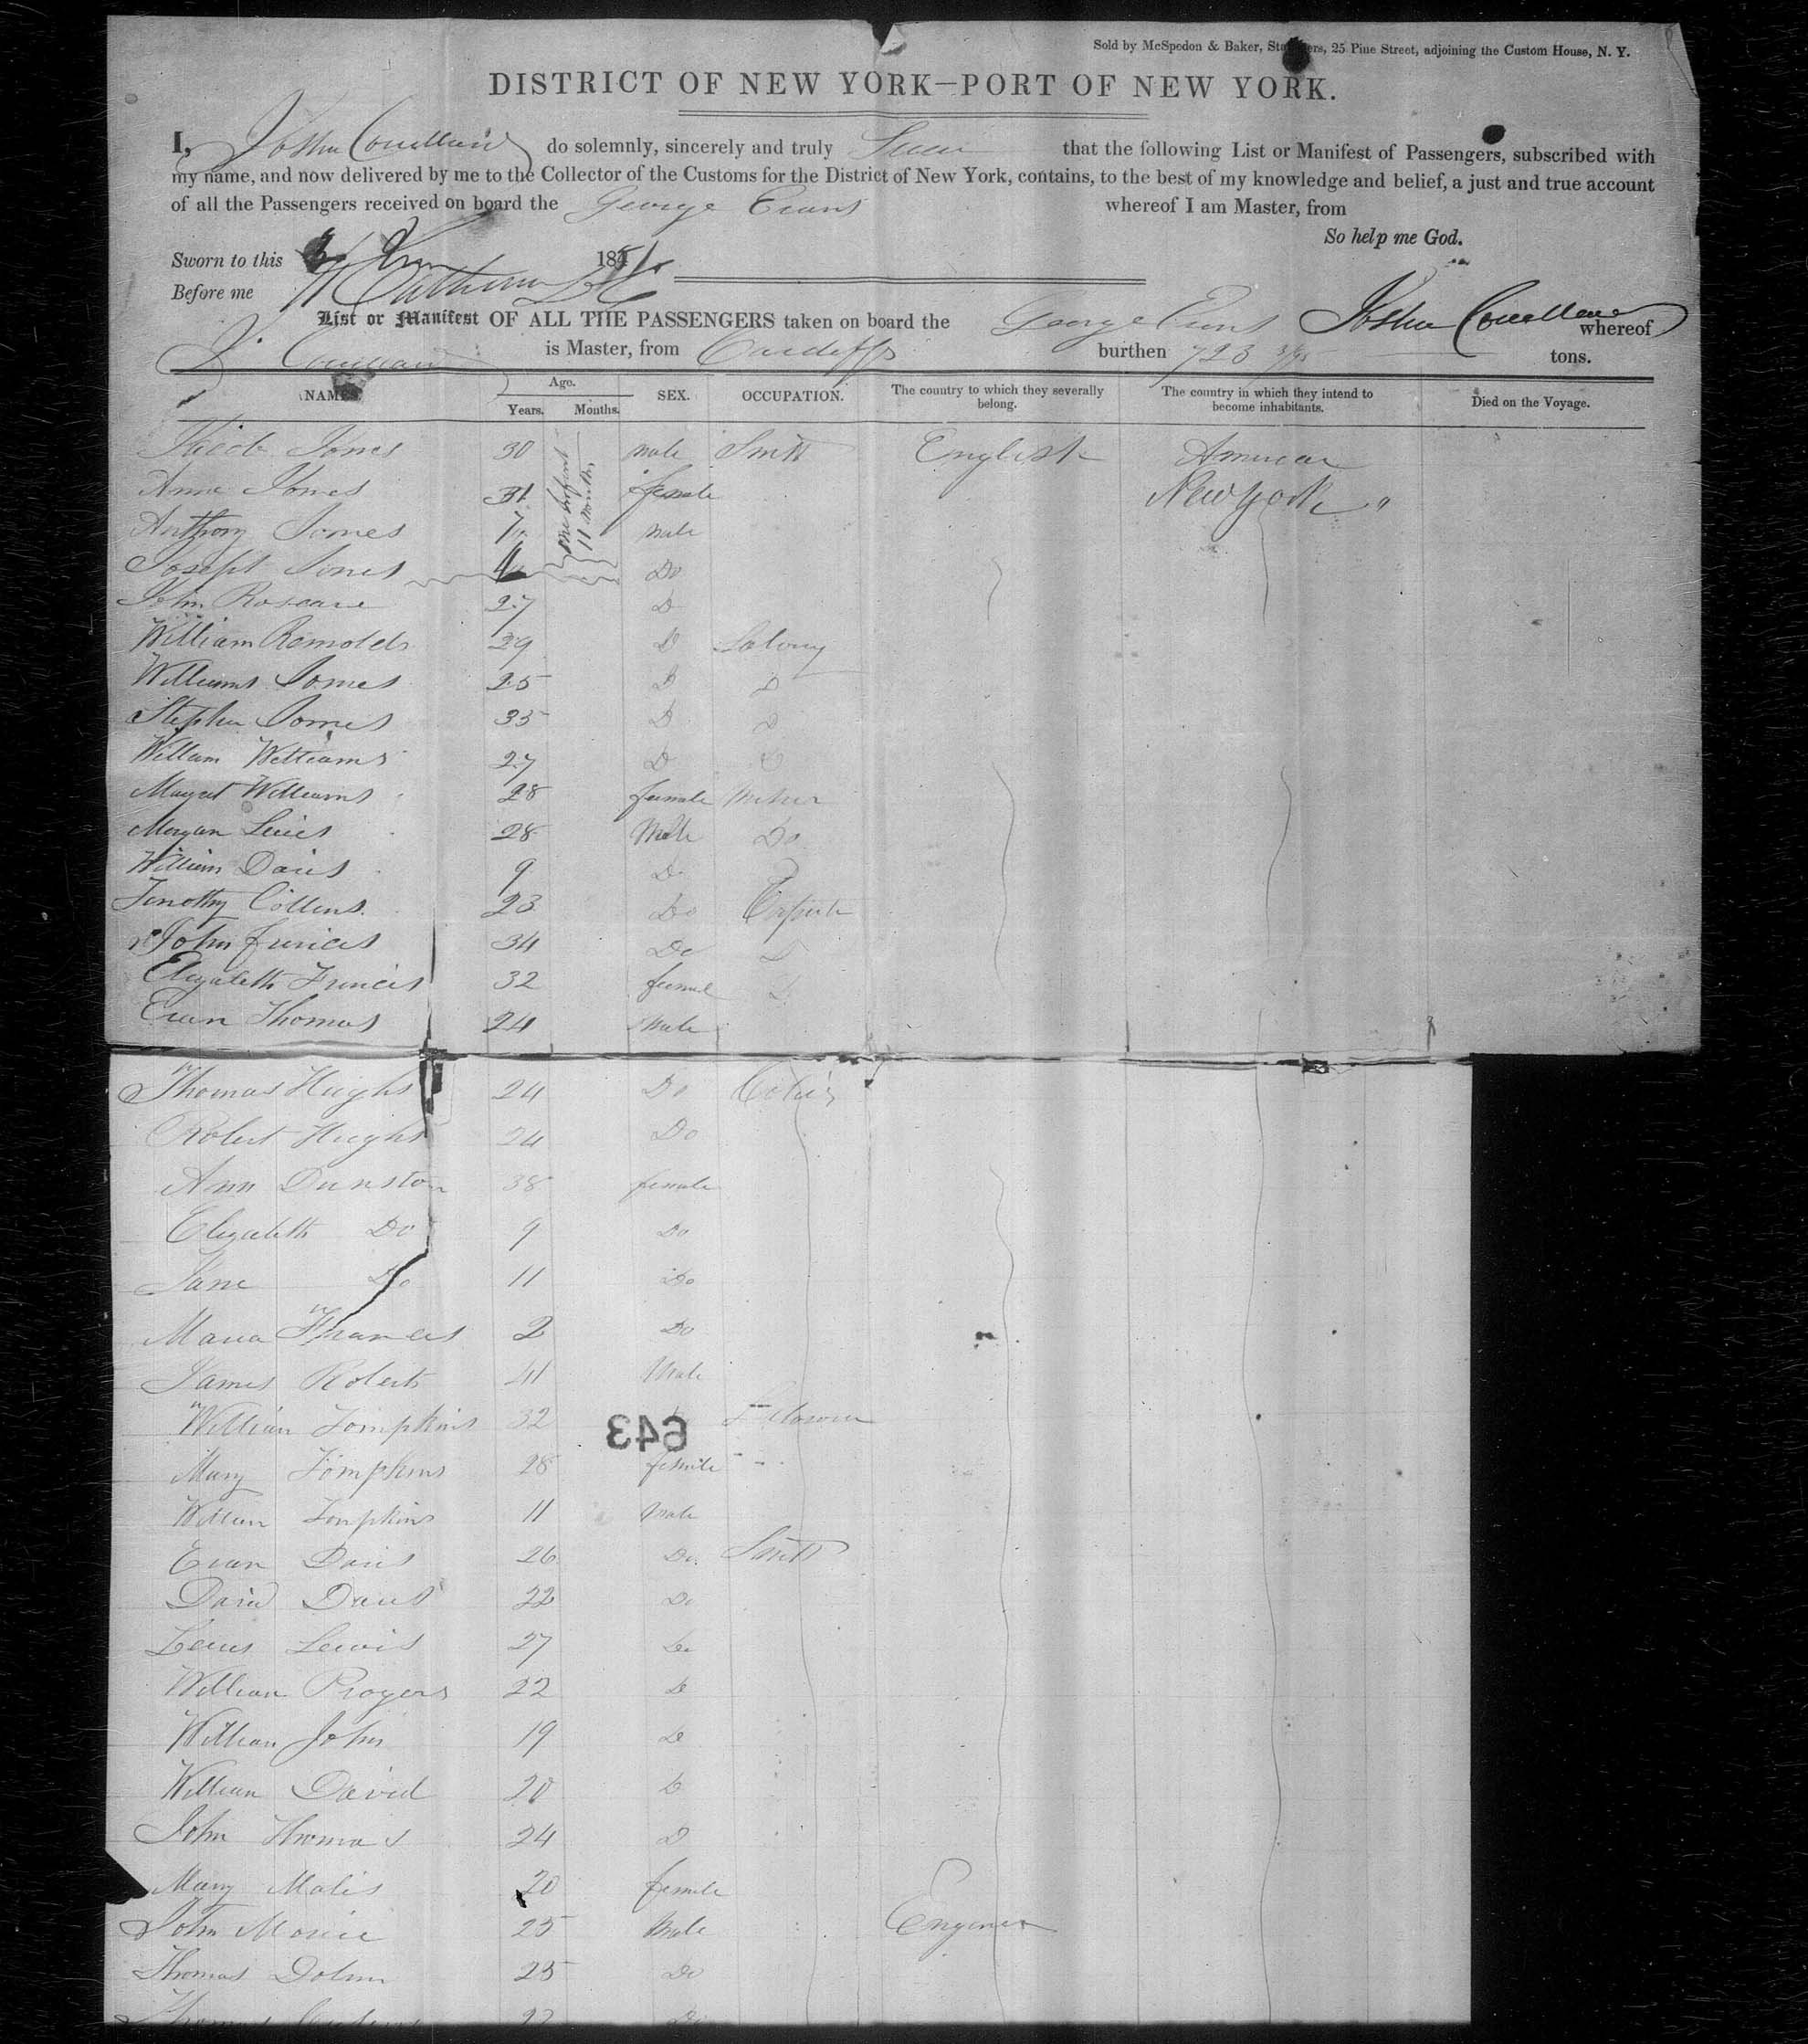 Sold by McSpedon & Baker, Sta ers, 25 Pine Street, adjoining the Custom House, N. Y.
DISTRICT OF NEW YORK—PORT OF NEW YORK.
I, do solemnly, sincerely and truly that the following List or Manifest of Passengers, subscribed with
my name, and now delivered by me to the Collector of the Customs for the District of New York, contains, to the best of my knowledge and belief, a just and true account
of all the Passengers received on board the George Evans whereof I am Master, from
So help me God.
Sworn to this 185
Before me
List or Manifest OF ALL THE PASSENGERS taken on board the George Evans whereof
is Master, from Cardiff burthen 723 tons.
NAMES Age. Years. Months. SEX. OCCUPATION. The country to which they severally belong. The country in which they intend to become inhabitants. Died on the Voyage.
Jones 30 male Smith English America
Anne Jones 31 female New York "
Anthony Jones 7 male
one infant 11 months
Joseph Jones 4 Do
John 27 D
William 29 D
Williams Jones 25 D D
Stephen Jones 35 D D
William Williams 27 D D
Margaret Williams 28 female
Morgan Lewis 28 Male Do
William Davis 9 D
Timothy Collins 23 Do
John Francis 34 Do D
Elizabeth Francis 32 female D
Evan Thomas 24 male
Thomas Hughs 24 Do
Robert Hughs 24 Do
Ann Dunston 38 female
Elizabeth Do 9 Do
Jane Do 11 Do
Maria Frances 2 Do
James Roberts Male
William Tompkins 32
643
Mary Tompkins 28 female
William Tompkins 11 male
Evan Davis 26 Do Smith
David Davis 22 Do
Lewis Lewis 27 Do
William Rogers 22 D
William John 19 D
William David 20 D
John Thomas 24 D
Mary 20 female
John 25 Male Enginer
Thomas 25 Do
Thomas